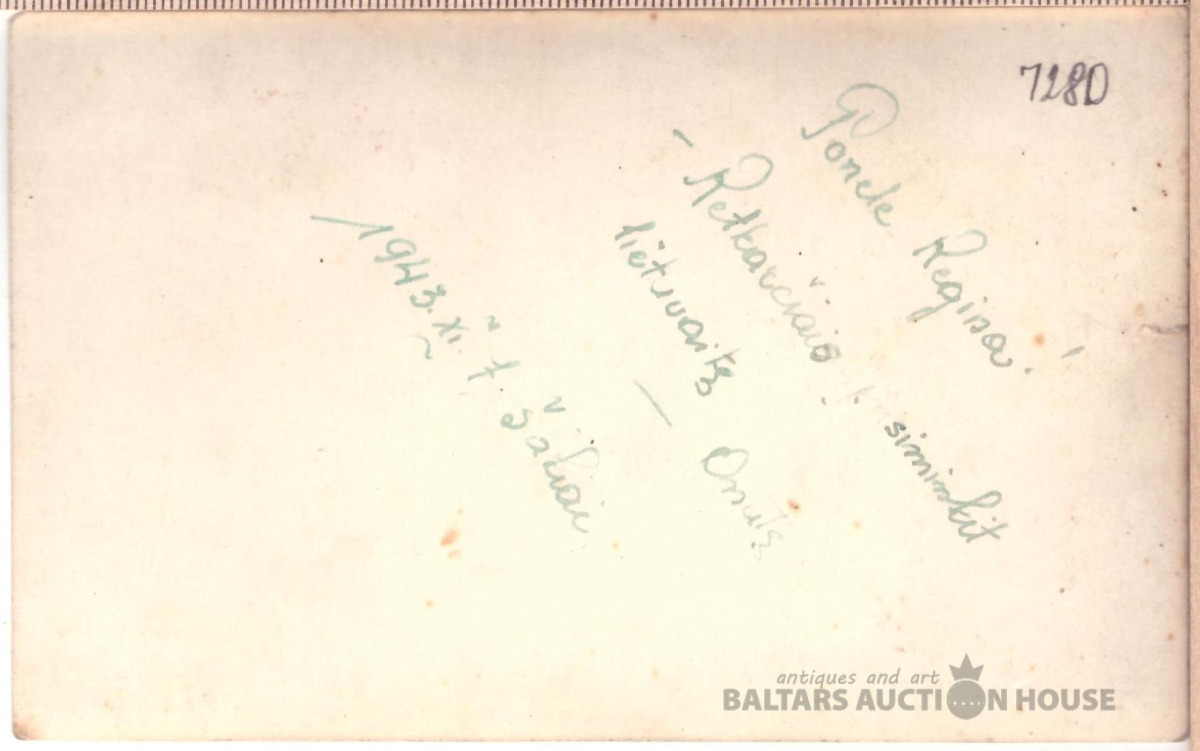 7280
Ponele Regina!
- Retkarčiais prisiminkit
lietuvaitę
- Onutę
1943.XI. 7. Šakiai
antiques and art
BALTARS AUCTION HOUSE